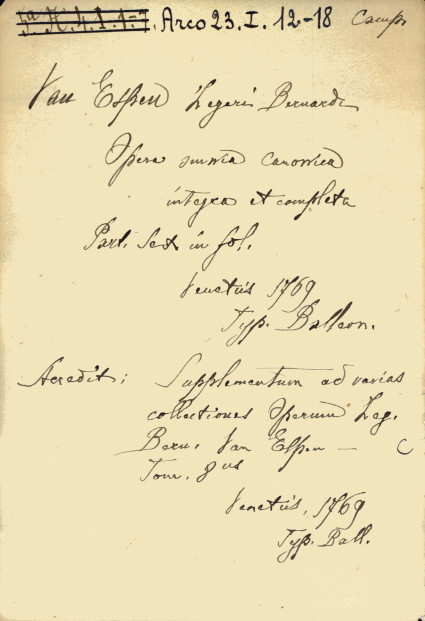 Arco 23. I. 12-18 Camp.
Van Espen Zegeri Bernardi
Opera omnia canonica
integra et completa
Part. Sex in fol.
Venetiis 1769
Typ. Balleon.
Accedit: Supplementum ad varias
collectiones Operum Zeg.
Bern. Van Espen —
Tom. 8us
C
Venetiis, 1769
Typ. Ball.